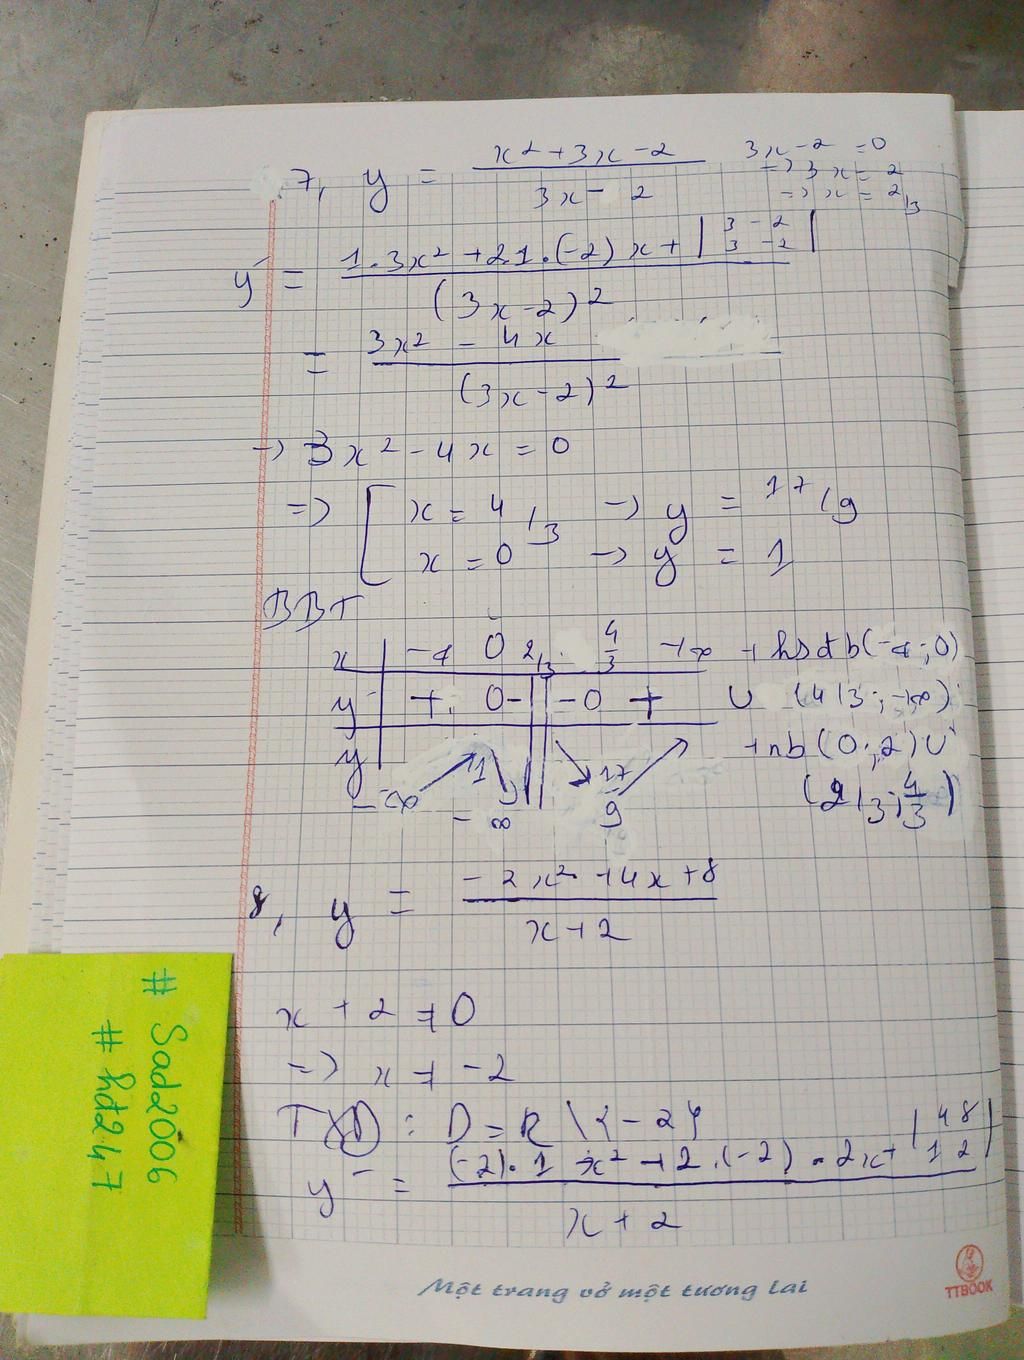 7, y = x² + 3x - 2 / 3x - 2
3x - 2 = 0
=> 3x = 2
=> x = 2/3
y' = 1.3x² + 21.(-2)x + | 3 -2 |
| 3 -2 |
(3x-2)²
= 3x² - 4x / (3x-2)²
-> 3x² - 4x = 0
=> [ x = 4/3 -> y = 17/9
x = 0 -> y = 1
BBT
x | -∞ 0 2/3 4/3 +∞
y' | + 0 - || - 0 +
y | -∞ 1 -∞ || 17/9
+ hsđb (-∞; 0)
∪ (4/3; +∞)
+ nb (0; 2) ∪
(2/3; 4/3)
8, y = -2x² + 4x + 8 / x + 2
x + 2 ≠ 0
=> x ≠ -2
TXD : D = R \ {-2}
y' = (-2).1 x² + 2.(-2).2x + | 4 8 |
| 1 2 |
x + 2
# Sad2006
# hd247
Một trang vở một tương lai
TTBOOK